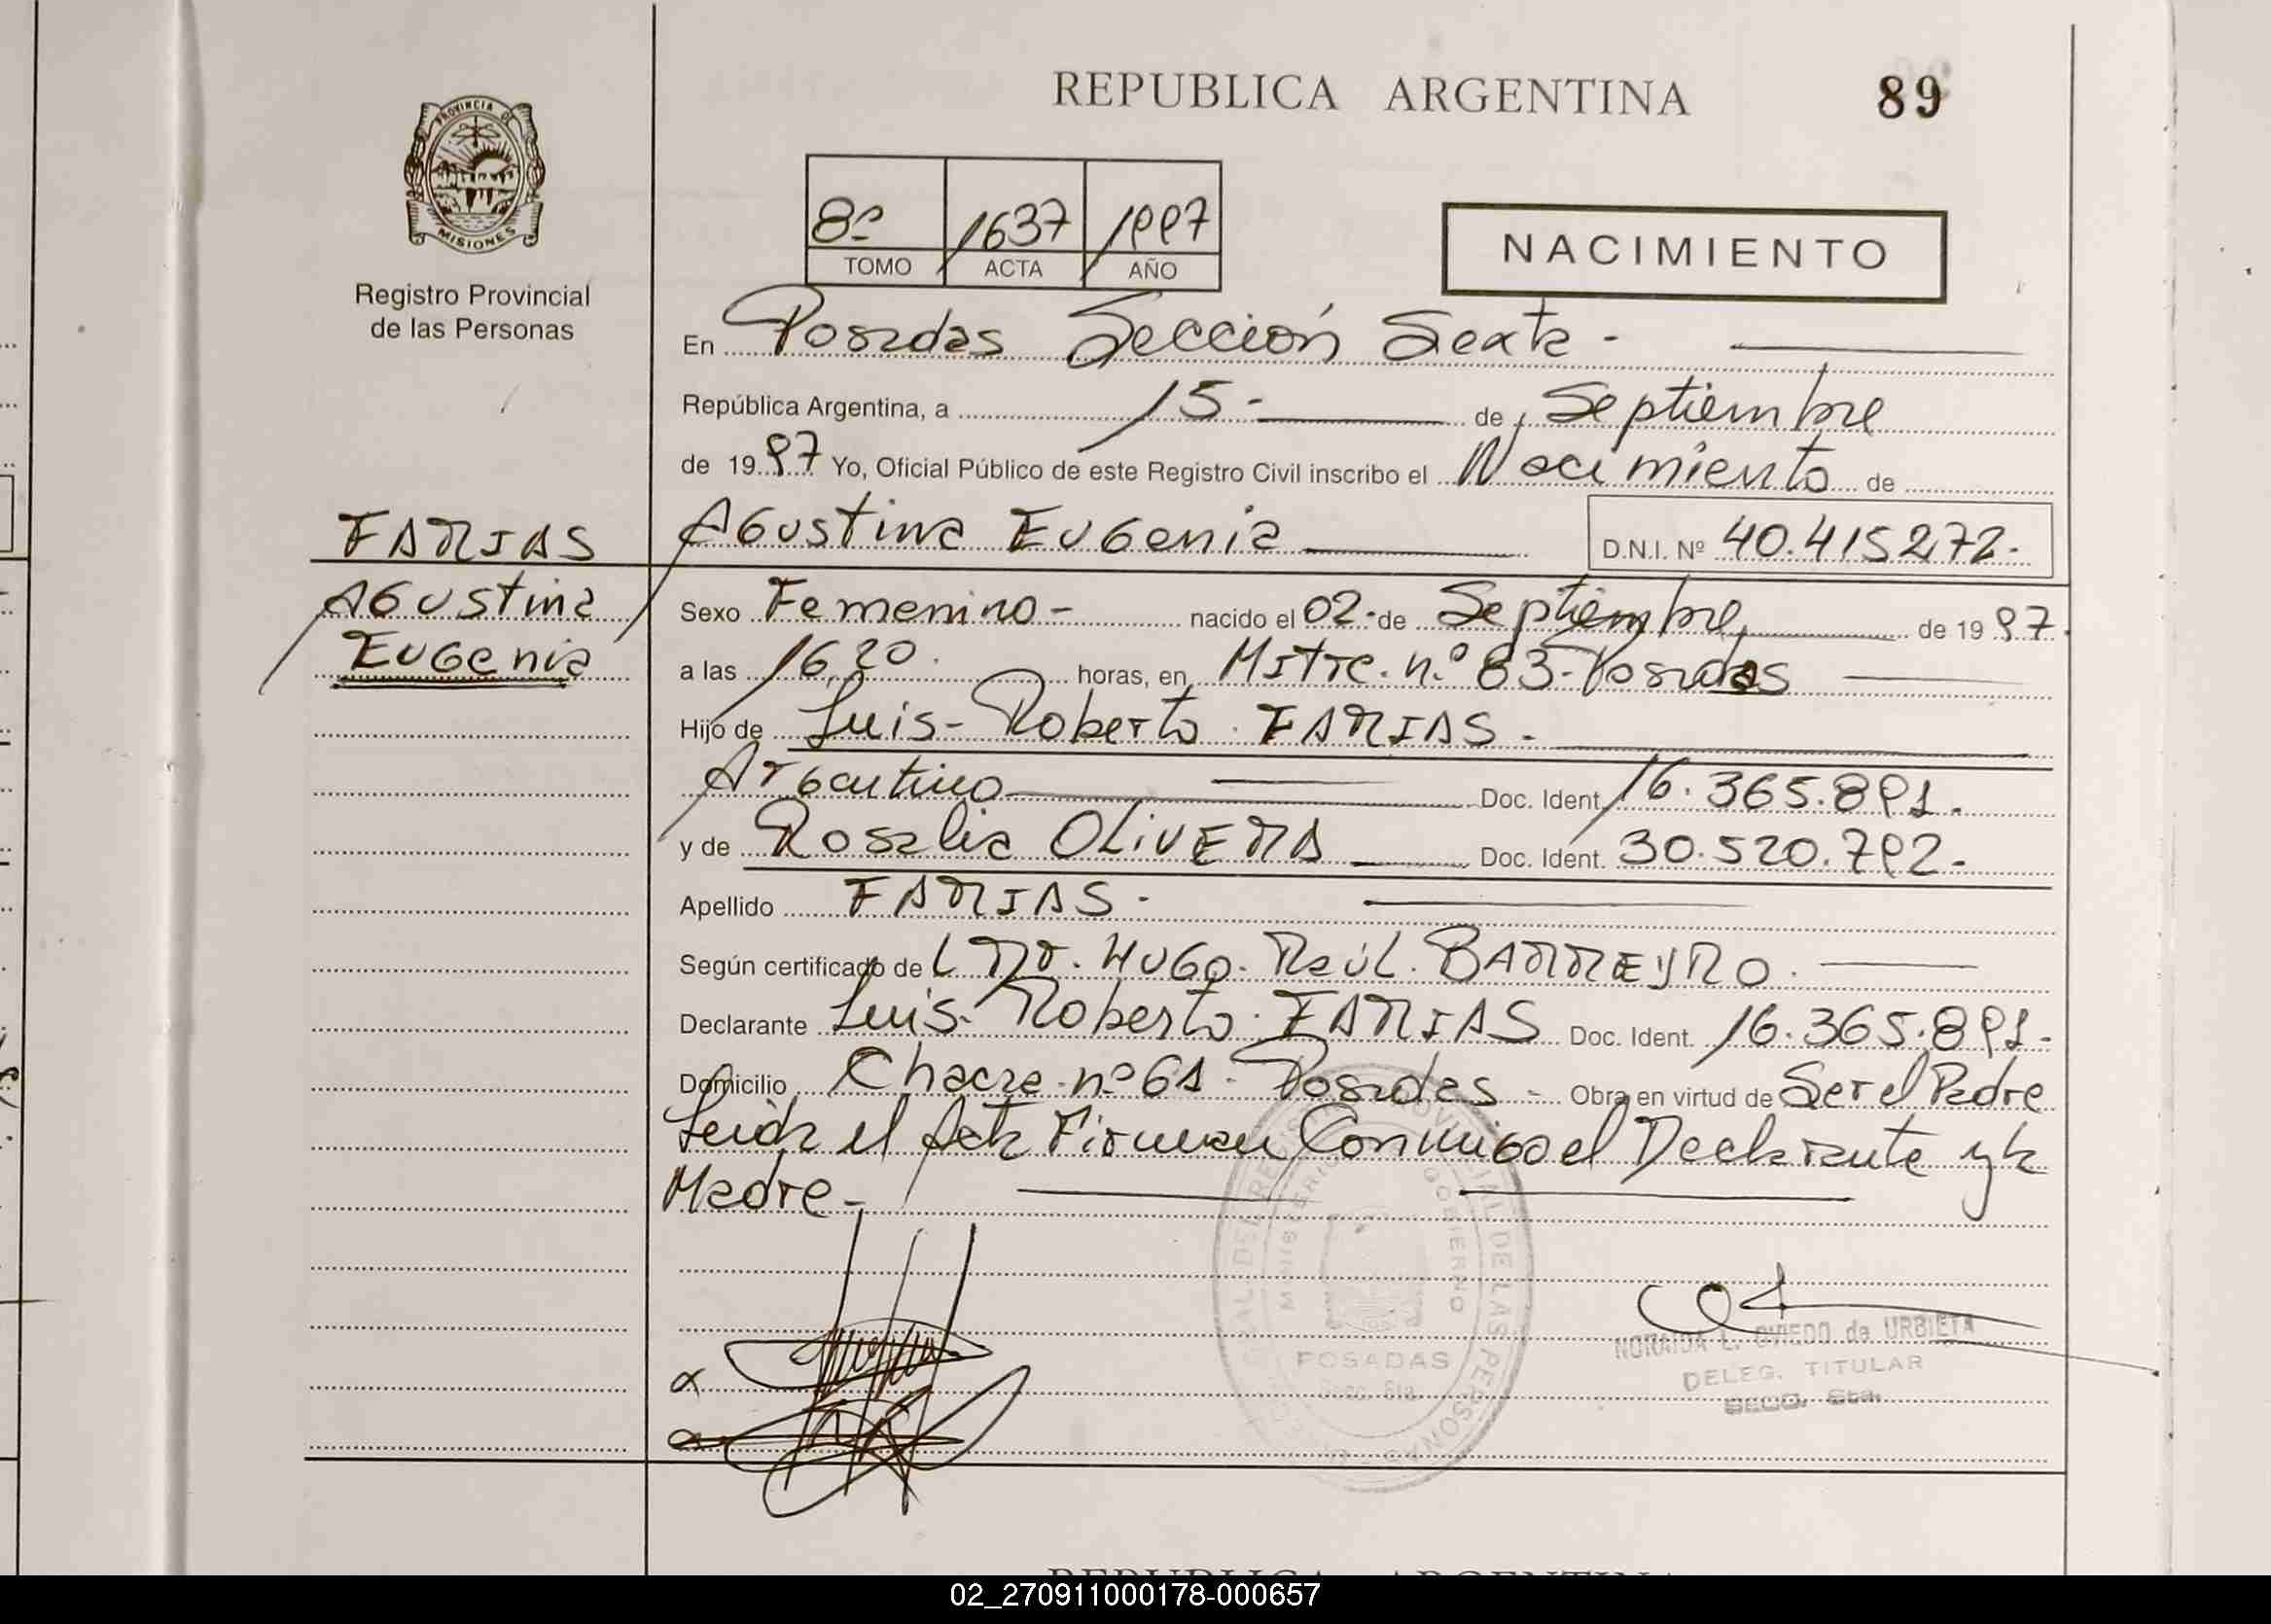 REPUBLICA ARGENTINA
89
PROVINCIA DE
MISIONES
Registro Provincial
de las Personas
8º 1637 1997
TOMO ACTA AÑO
NACIMIENTO
En Posadas Sección Sexta -
República Argentina, a 15 - de Septiembre
de 1997 Yo, Oficial Público de este Registro Civil inscribo el Nacimiento de
FARIAS
Agustina
Eugenia
Agustina Eugenia D.N.I. Nº 40.415.272.-
Sexo Femenino - nacido el 02 - de Septiembre de 1997.
a las 16,20. horas, en Mitre. n.º 83 - Posadas
Hijo de Luis - Roberto. FARIAS -
Argentino Doc. Ident. 16.365.891.-
y de Rosalia OLIVERA Doc. Ident. 30.520.792.-
Apellido FARIAS -
Según certificado de Dr. HUGO. Raúl. BARREYRO.
Declarante Luis - Roberto. FARIAS Doc. Ident. 16.365.891.-
Domicilio Chacra nº 61 - Posadas - Obra en virtud de Ser el Padre
Leida el Acta Firman Conmigo el Declarante y la
Madre -
MINISTERIO GOBIERNO
POSADAS
Secc. 6ta.
NORAIDA L. OVIEDO de URBIETA
DELEG. TITULAR
SECC. 6ta.
REPUBLICA ARGENTINA
02_270911000178-000657